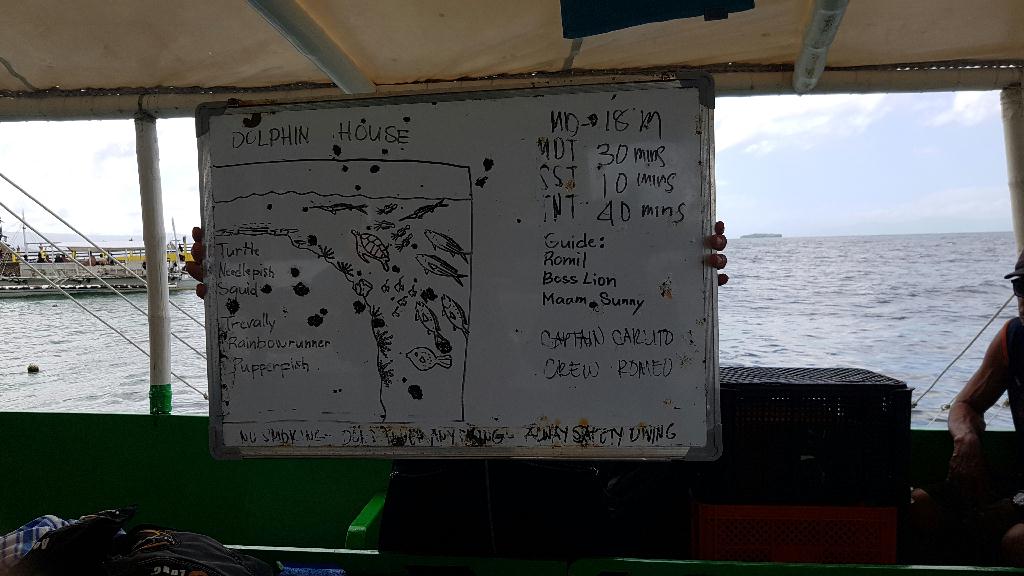 DOLPHIN HOUSE
Turtle
Needlepish
Squid
Trevally
Rainbowrunner
Pupperpish
MD→18 M
MDT 30 mins
SST 10 mins
TNT 40 mins
Guide:
Romil
Boss Lion
Maam Sunny
CAPTAIN CARLITO
CREW ROMEO
NO SMOKING- DON'T TOUCH ANYTHING- ALWAY SAFETY DIVING